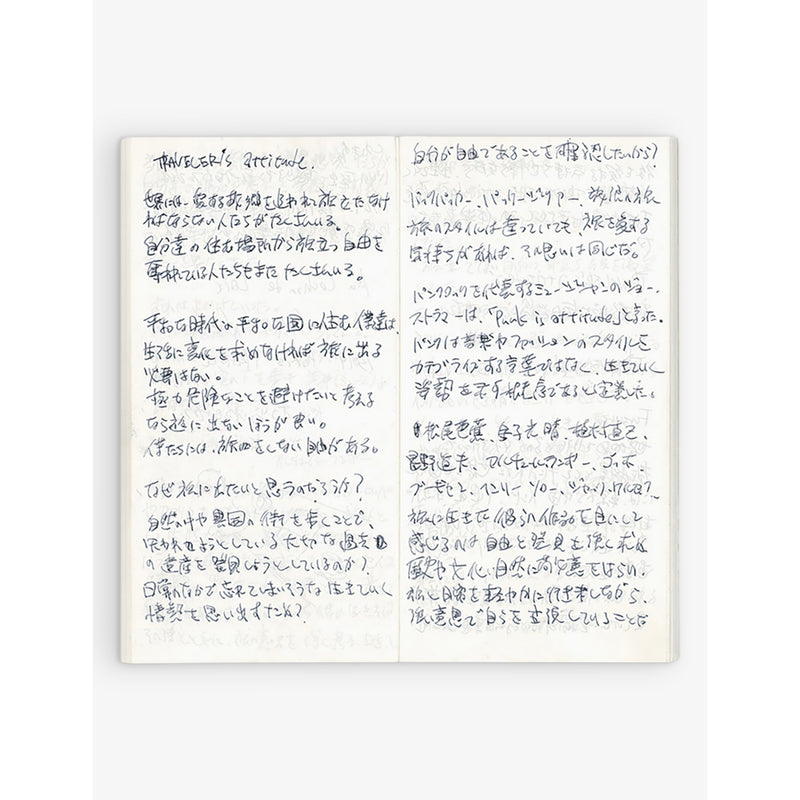 TRAVELER's attitude.
世界には、愛する故郷を追われ、旅をたなけ
ればならない人たちがたくさんいる。
自分達の住む場所から旅立つ自由を
奪われている人たちもまた たくさんいる。
平和な時代の平和な国に住む僕達は、
生活に変化を求めなければ旅に出る
必要はない。
極力危険なことを避けたいと考える
なら旅に出ないほうが良い。
僕たちには、旅をしない自由がある。
なぜ旅に出たいと思うのだろうか?
自然の中や異国の街を歩くことで、
失われようとしている大切な過去
の遺産を発見しようとしているのか?
日常のなかで忘れてしまいそうな 生きていく
情熱を思い出すため?
自分が自由であることを確認したいから?
バックパッカー、バックジャーニー、旅
旅のスタイルは違っていても、旅を愛する
気持ちがあれば、その思いは同じだ。
パンクロックを代表するミュージシャンのジョー・
ストラマーは、「Punk is attitude」と言った。
パンクは音楽やファッションのスタイルを
カテゴライズする言葉ではなく、生きていく
姿勢を示す概念であると定義した。
松尾芭蕉、金子光晴、植村直己、
星野道夫、アルチュール・ランボー、ゴッホ、
ゴーギャン、ヘンリー・ソロー、ジャック・ケルアック
旅に生きた彼らの作品を目にして
感じるのは自由と発見を強く求め
歴史や文化、自然に敬意をはらい、
旅と日常を軽やかに行き来しながら、
強い意思で自らを表現していることだ